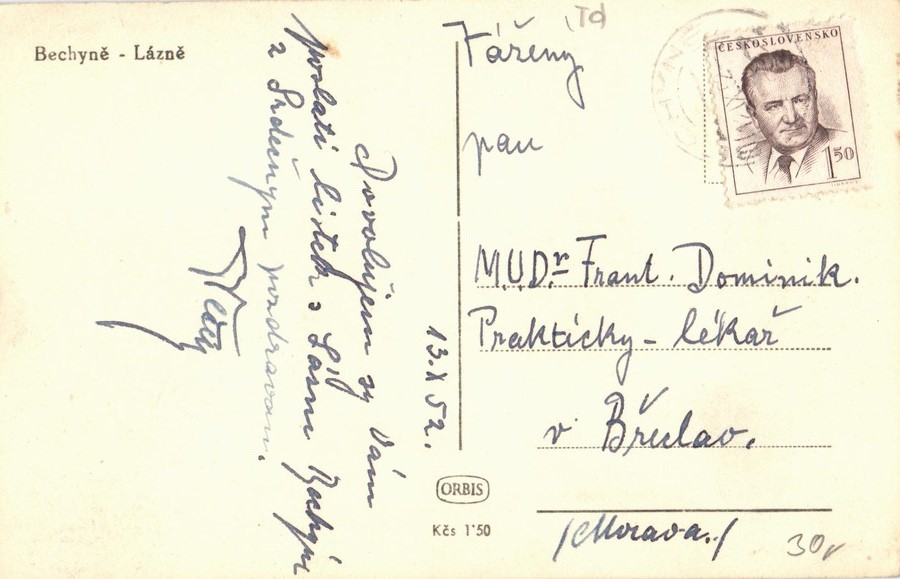 Bechyně - Lázně
13.X 52.
Dovolujem sy Vám
poslati lístek s Lázní Bechyně
z Srdečným pozdravem.
Vážený
pan
M.U.Dr. Frant. Dominik.
Prakticky - lékař
v Břeclav.
/Morava./
ČESKOSLOVENSKO
1 50
ORBIS
Kčs 1'50
30,